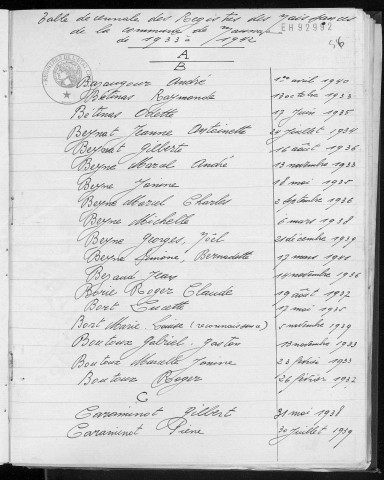 Table décennale des Registres des Naissances
de la commune de
de 1933 à 1942
EH92992
A
B
Barangour André 1er avril 1940
Bétinas Raymonde 13 octobre 1933
Bétinas Odette 17 juin 1935
Beynat Jeanne Antoinette 24 juillet 1934
Beynat Gilbert 16 août 1936
Beyne Marcel André 13 novembre 1933
Beyne Janine 18 mai 1935
Beyne Marcel Charles 2 septembre 1936
Beyne Michelle 6 mars 1938
Beyne Georges, Joël 21 décembre 1939
Beyne Simone, Bernadette 17 mars 1941
Bezaud Jean 14 novembre 1936
Borie Roger Claude 19 août 1937
Bort Lucette 17 mai 1935
Bort Marie-Louise (reconnaissance) 5 novembre 1939
Bouteux Gabriel-Gaston 13 novembre 1933
Bouteux Marcelle Janine 23 février 1933
Bouteux Roger 26 février 1937
C
Caraminot Gilbert 31 mai 1938
Caraminot Pierre 30 juillet 1939